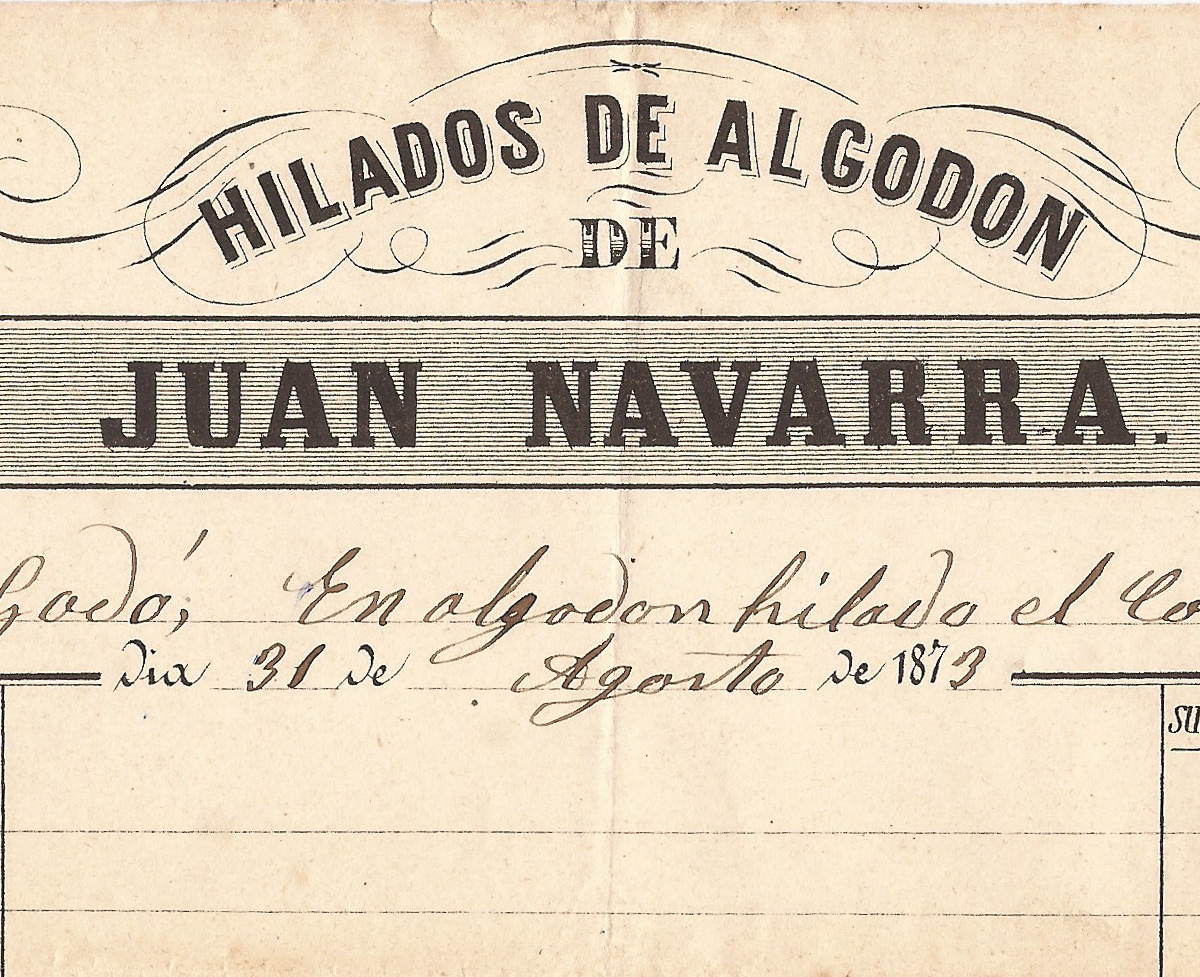 HILADOS DE ALGODON
DE
JUAN NAVARRA.
Godó, En algodon hilado el Co
dia 31 de Agosto de 1873
SU